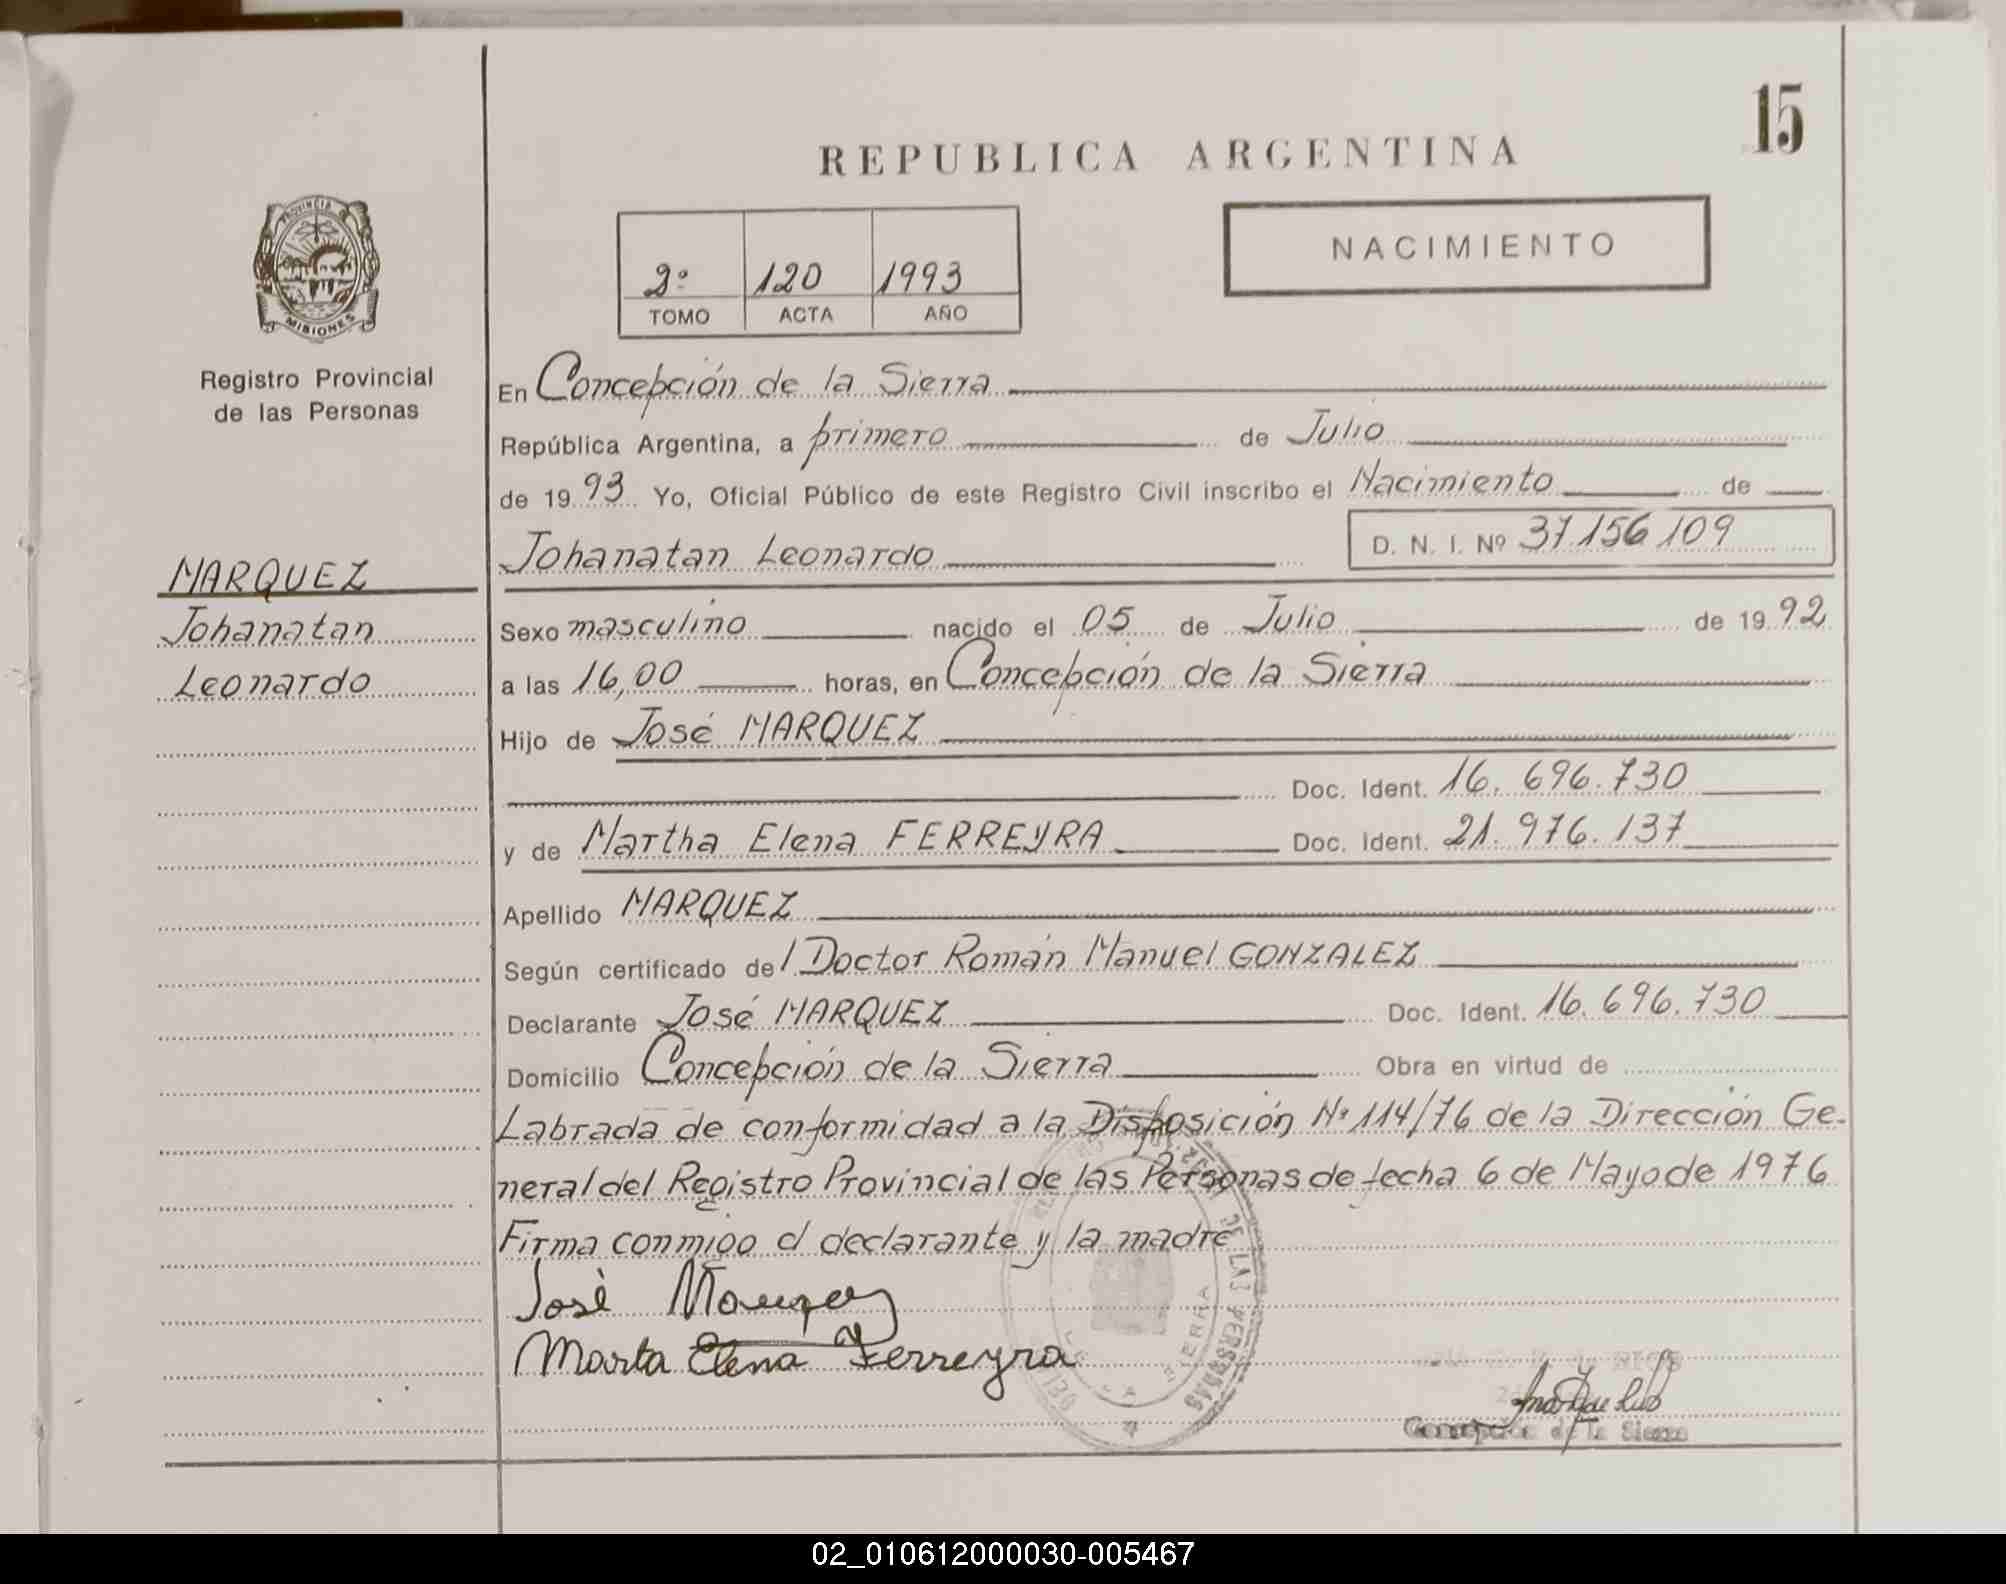 15
REPUBLICA ARGENTINA
PROVINCIA DE
MISIONES
Registro Provincial
de las Personas
2º 120 1993
TOMO ACTA AÑO
NACIMIENTO
En Concepción de la Sierra
República Argentina, a primero de Julio
de 1993 Yo, Oficial Público de este Registro Civil inscribo el Nacimiento de
Johanatan Leonardo D. N. I. Nº 37.156.109
MARQUEZ
Johanatan
Leonardo
Sexo masculino nacido el 05 de Julio de 1992
a las 16,00 horas, en Concepción de la Sierra
Hijo de José MARQUEZ
Doc. Ident. 16.696.730
y de Martha Elena FERREYRA Doc. Ident. 21.976.137
Apellido MARQUEZ
Según certificado del Doctor Román Manuel GONZALEZ
Declarante José MARQUEZ Doc. Ident. 16.696.730
Domicilio Concepción de la Sierra Obra en virtud de
Labrada de conformidad a la Disposición Nº 114/76 de la Dirección Ge-
neral del Registro Provincial de las Personas de fecha 6 de Mayo de 1976
Firma conmigo el declarante y la madre
José Marquez
Marta Elena Ferreyra
DE LAS PERSONAS
SIERRA
Concepción de la Sierra
02_010612000030-005467